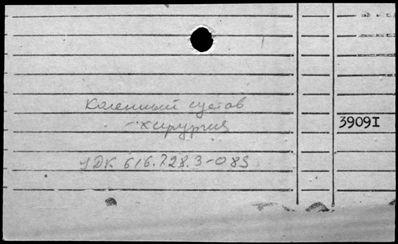 Коленный сустав
39091
- хирургия
УДК 616.728.3-089